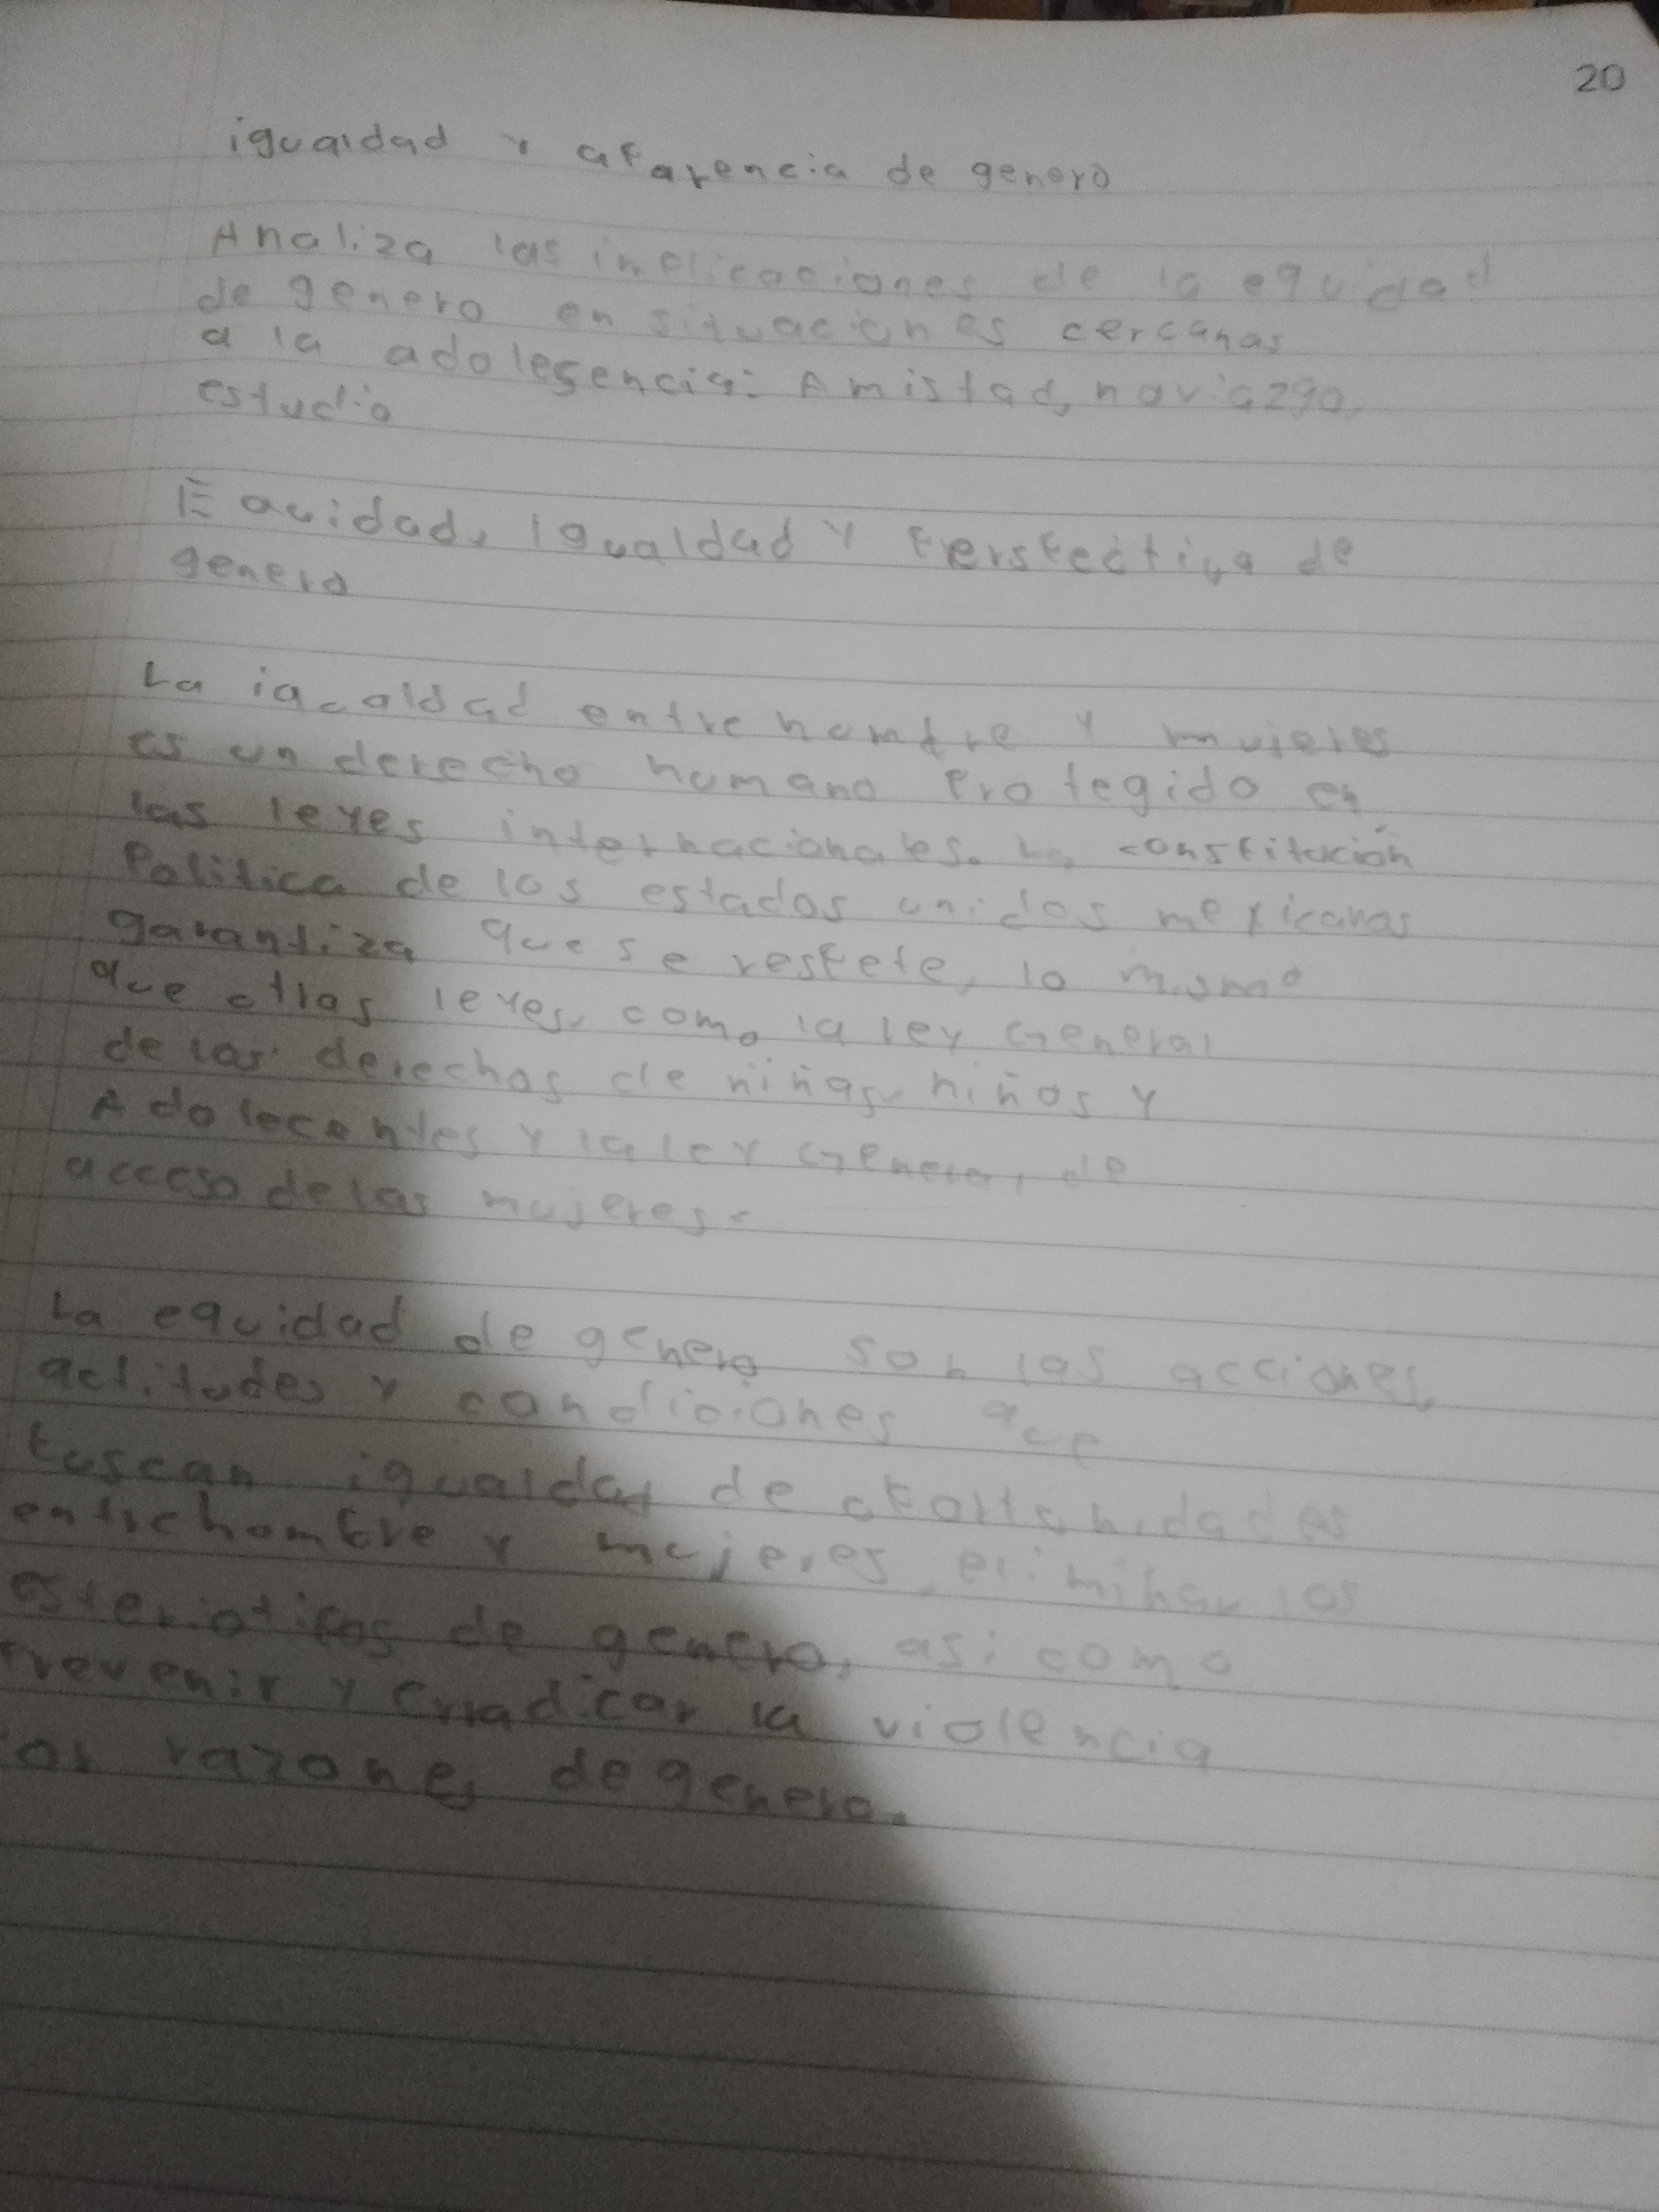 20
igualdad y aparencia de genero
Analiza las implicaciones de la equidad
de genero en situaciones cercanas
a la adolesencia: Amistad, noviazgo,
estudio
Equidad, Igualdad y Perspectiva de
genero
La igualdad entre hombre y mujeres
es un derecho humano Protegido en
las leyes internacionales. La constitución
Politica de los estados unidos mexicanos
garantiza que se respete, lo mismo
que otras leyes, como la ley General
de las derechos de niñas, niños y
Adolecentes y la ley General de
acceso de las mujeres.
La equidad de genero son las acciones,
actitudes y condiciones que
buscan igualdad de oportunidades
entre hombre y mujeres, eliminar los
esteriotipos de genero, asi como
Prevenir y erradicar la violencia
or razones de genero.